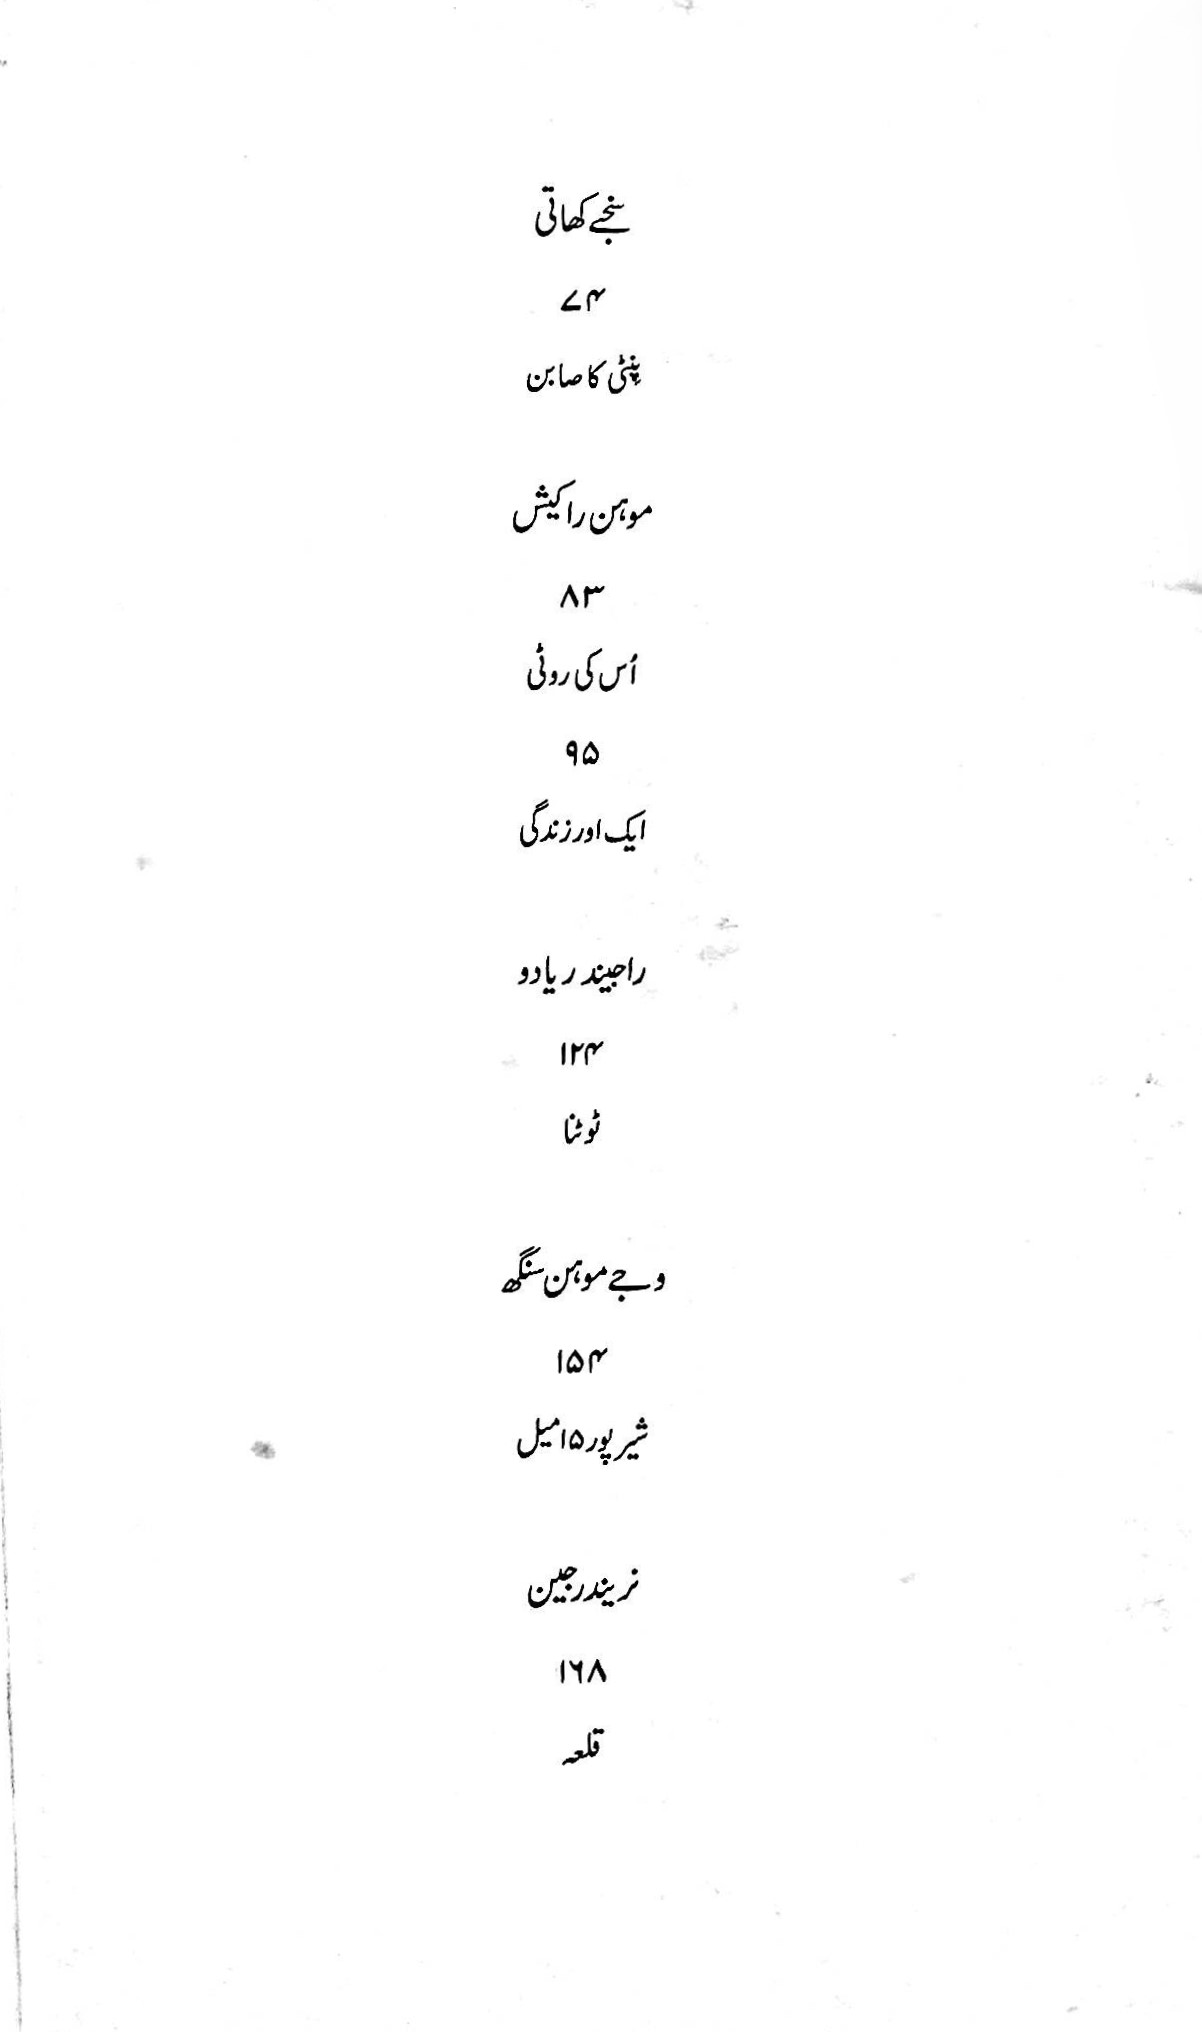 سنجے کھاتی
۷۴
پنٹی کا صابن
موہن راکیش
۸۳
اُس کی روٹی
۹۵
ایک اور زندگی
راجیندر یادو
۱۲۴
ٹوٹنا
وجے موہن سنگھ
۱۵۴
شیرپور ۱۵ میل
نریندر جین
۱۶۸
قلعہ